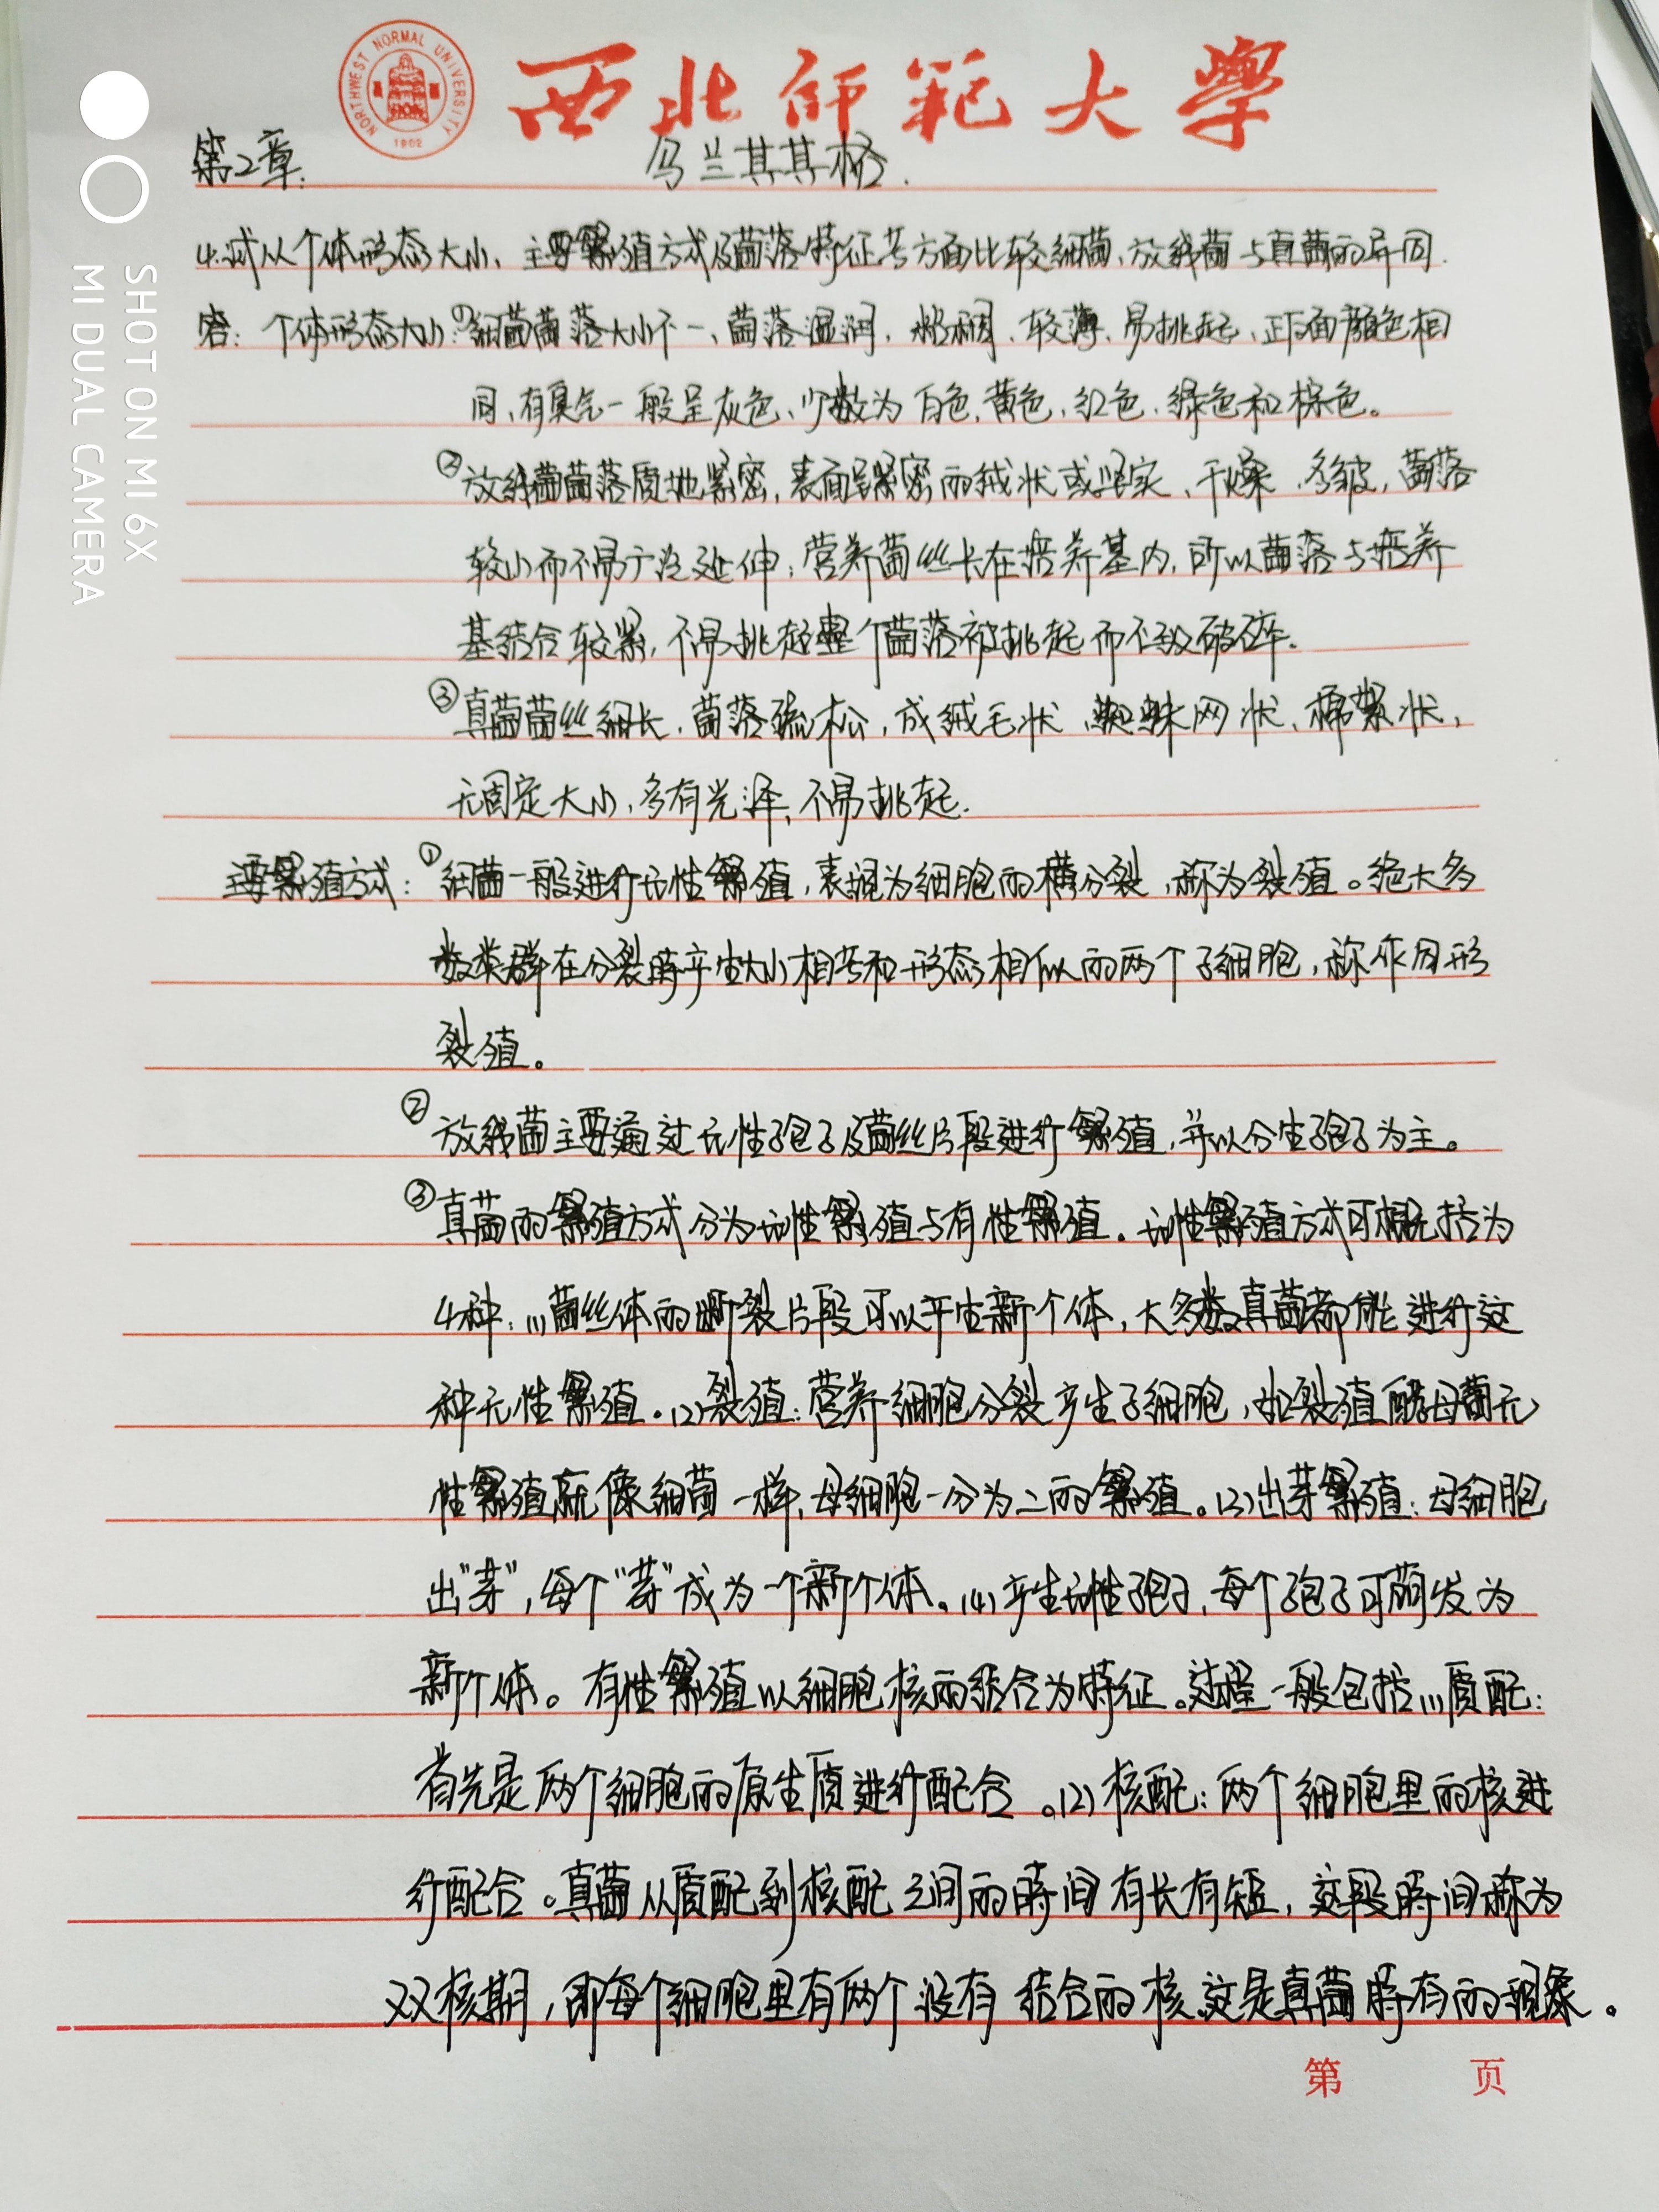 NORTHWEST NORMAL UNIVERSITY
1902
西北师范大学
第2章.
乌兰其其格.
4.试从个体形态大小、主要繁殖方式及菌落特征等方面比较细菌、放线菌与真菌的异同.
答: 个体形态大小:①细菌菌落大小不一、菌落湿润、粘稠、较薄、易挑起、正反面颜色相
同、有臭气一般呈灰色、少数为白色、黄色、红色、绿色和棕色。
②放线菌菌落质地紧密,表面呈紧密的绒状或坚实、干燥、多皱,菌落
较小而不易广泛延伸;营养菌丝长在培养基内,所以菌落与培养
基结合较紧,不易挑起整个菌落被挑起而不致破碎.
③真菌菌丝细长,菌落疏松,成绒毛状、蜘蛛网状、棉絮状,
无固定大小,多有光泽,不易挑起.
主要繁殖方式:①细菌一般进行无性繁殖,表现为细胞的横分裂,称为裂殖。绝大多
数类群在分裂时产生大小相等和形态相似的两个子细胞,称作同形
裂殖。
②放线菌主要通过无性孢子及菌丝片段进行繁殖,并以分生孢子为主。
③真菌的繁殖方式分为无性繁殖与有性繁殖.无性繁殖方式可概括为
4种:(1)菌丝体的断裂片段可以产生新个体,大多数真菌都能进行这
种无性繁殖.(2)裂殖:营养细胞分裂产生子细胞,如裂殖酵母菌无
性繁殖就像细菌一样,母细胞一分为二的繁殖。(3)出芽繁殖:母细胞
出“芽”,每个“芽”成为一个新个体。(4)产生无性孢子,每个孢子可萌发为
新个体。有性繁殖以细胞核的结合为特征。过程一般包括(1)质配:
首先是两个细胞的原生质进行配合。(2)核配:两个细胞里的核进
行配合。真菌从质配到核配之间的时间有长有短,这段时间称为
双核期,即每个细胞里有两个没有结合的核,这是真菌特有的现象。
第 页
SHOT ON MI 6X
MI DUAL CAMERA